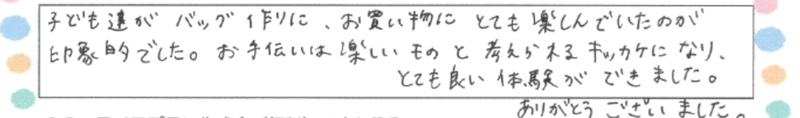 子ども達が バッグ作りに、お買い物に とても楽しんでいたのが
印象的でした。お手伝いは楽しい ものと 考えられる キッカケに なり、
とても良い 体験が できました。
ありがとう ございました。